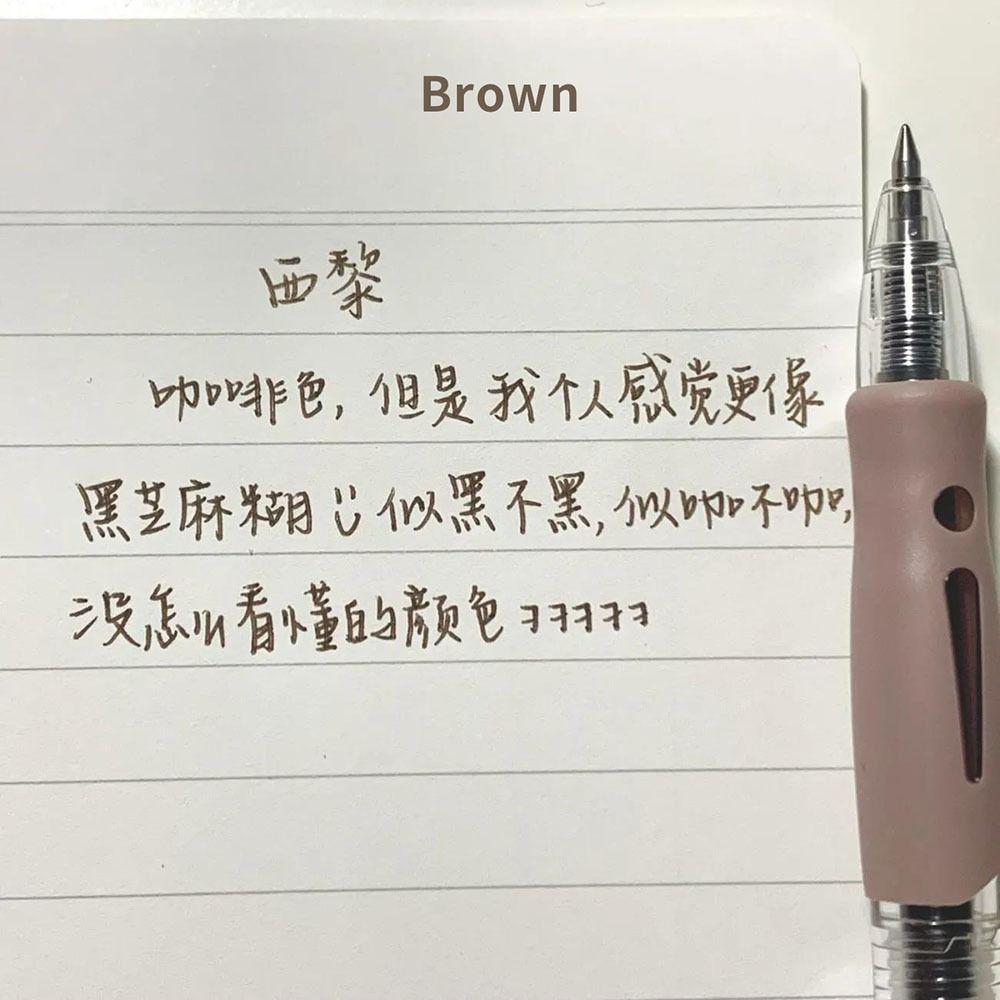 Brown
西黎
咖啡色,但是我个人感觉更像
黑芝麻糊ツ似黑不黑,似咖不咖,
没怎么看懂的颜色ヨヨヨヨヨ